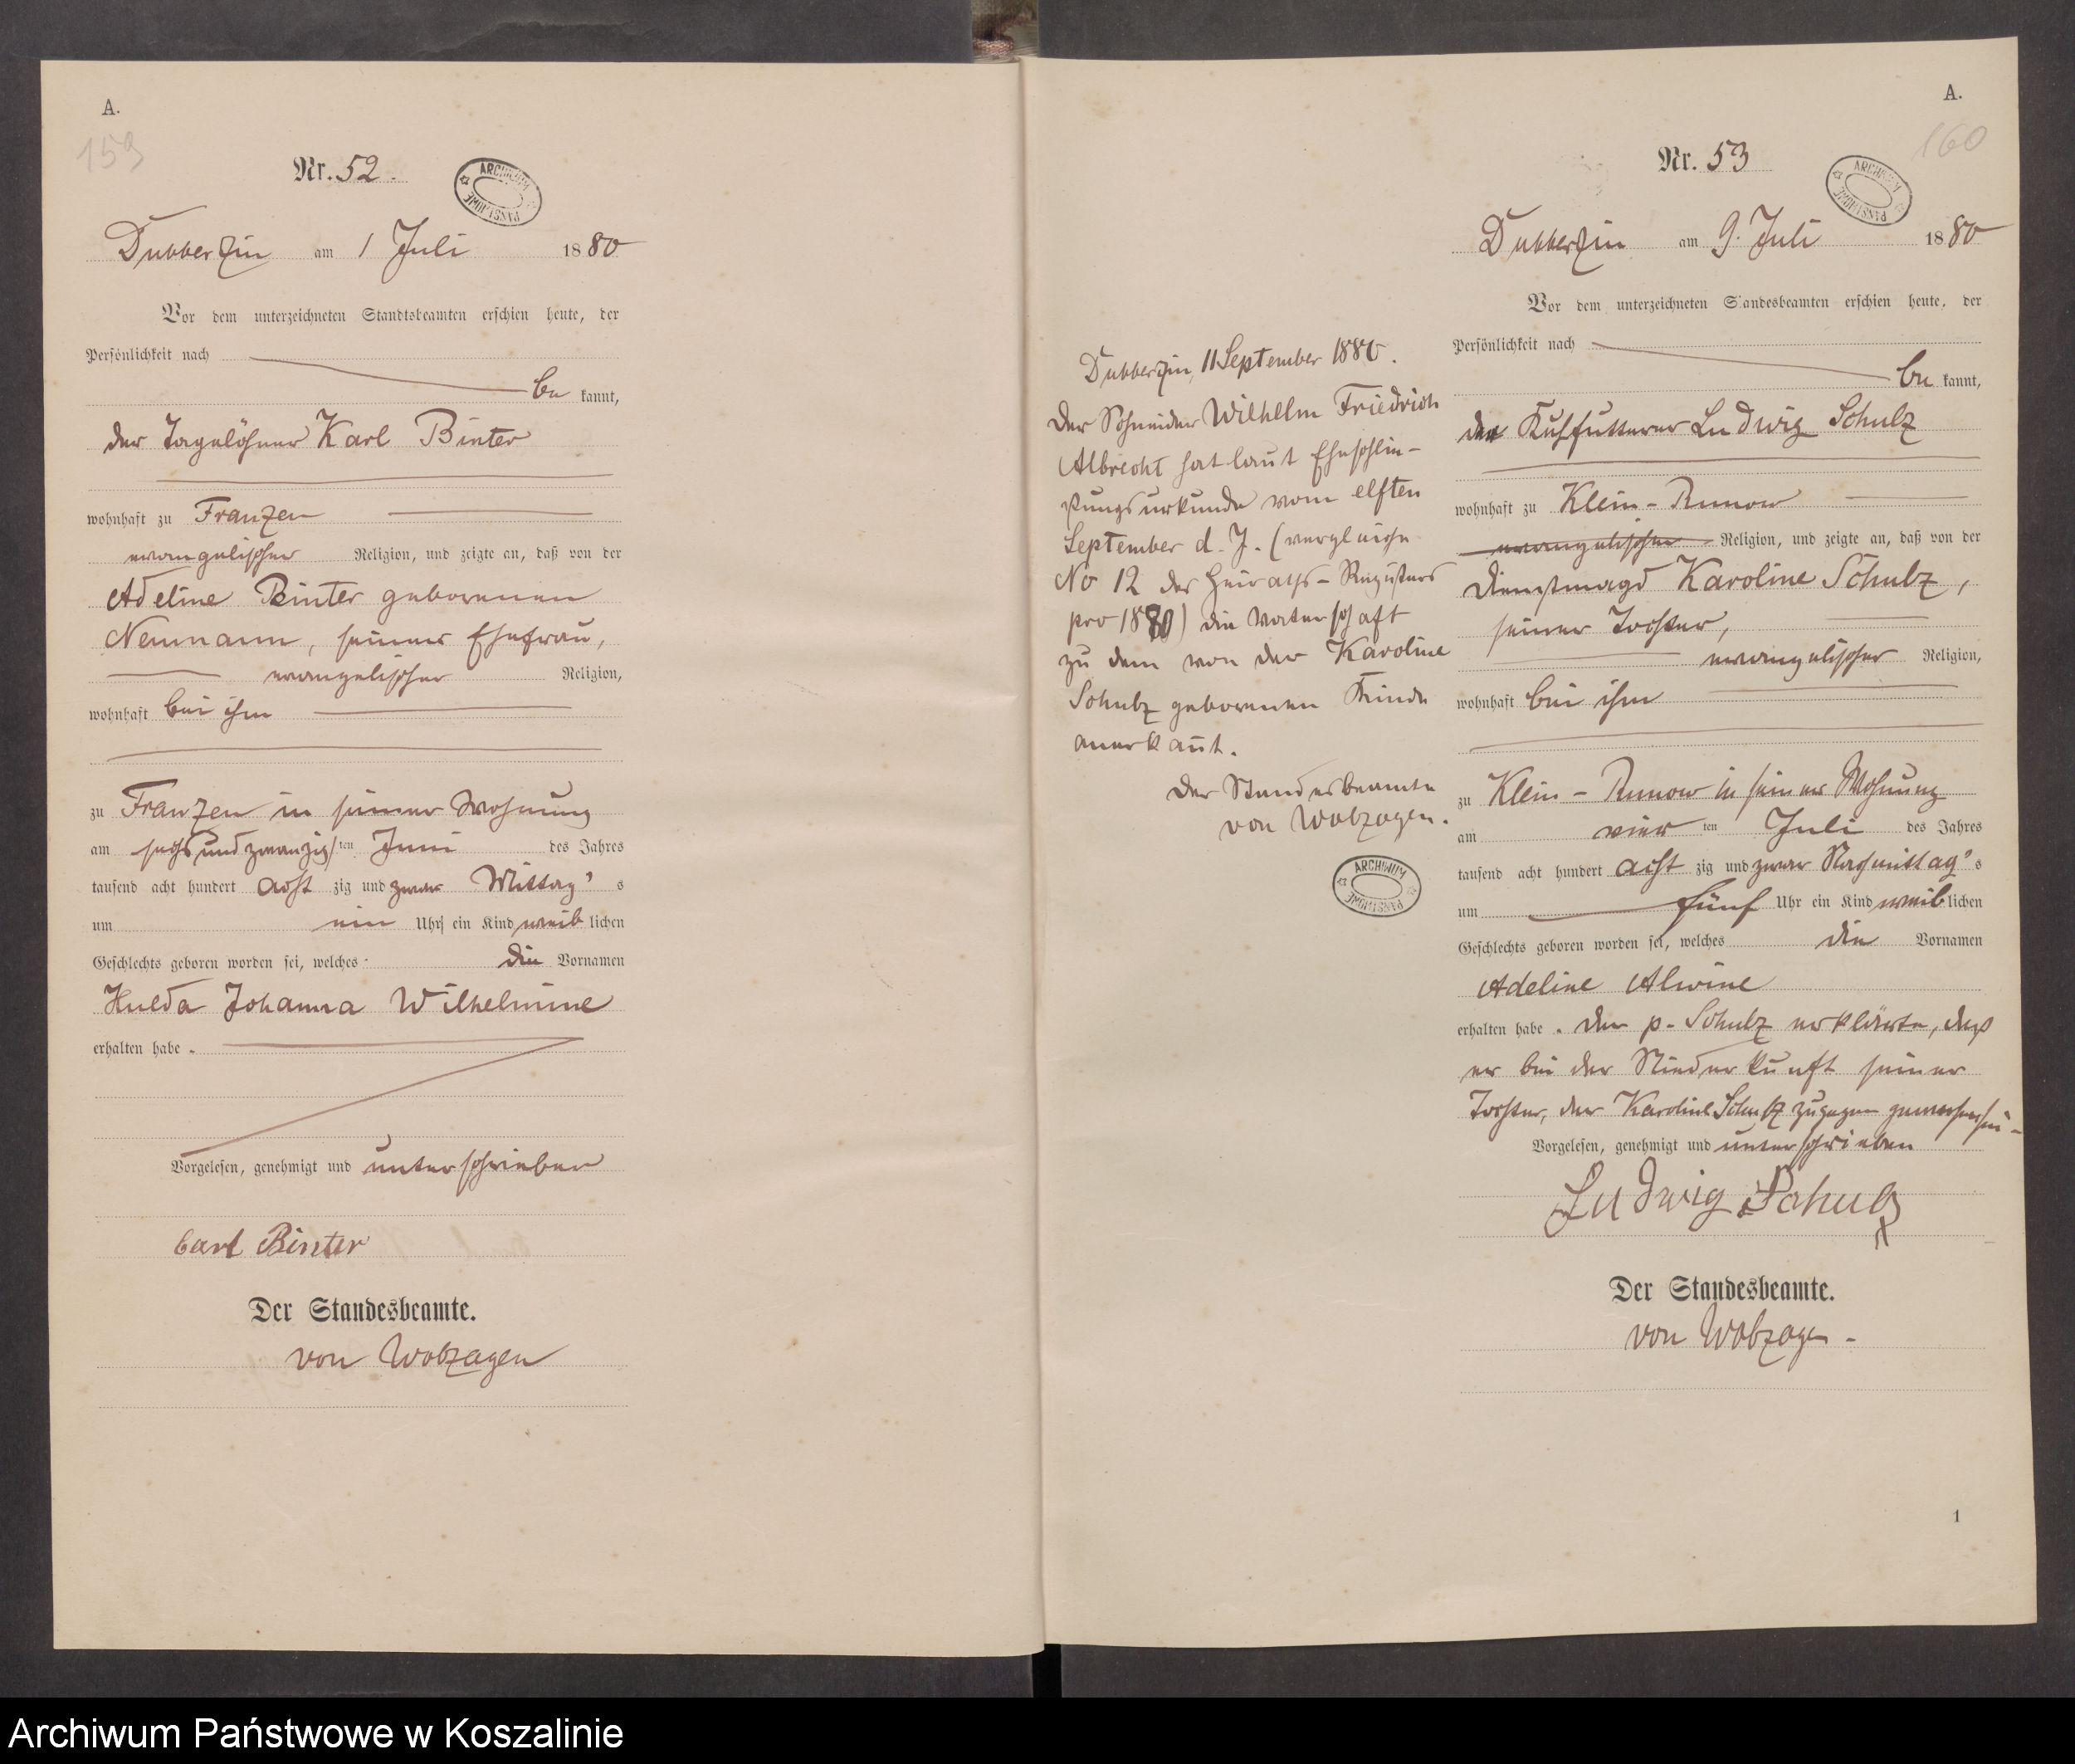 A.
159
Nr. 52.
ARCHIWUM PAŃSTWOWE
Dubberzin am 1 Juli 1880
Vor dem unterzeichneten Standtsbeamten erschien heute, der
Persönlichkeit nach
be kannt,
der Tagelöhner Karl Binter
wohnhaft zu Franzen
evangelischer Religion, und zeigte an, daß von der
Adeline Binter geborenen
Neumann, seiner Ehefrau,
evangelischer Religion,
wohnhaft bei ihm
zu Franzen in seiner Wohnung
am sechsundzwanzigsten Juni des Jahres
tausend acht hundert acht zig und zwar Mittag's
um ein Uhr ein Kind weib lichen
Geschlechts geboren worden sei, welches die Vornamen
Hulda Johanna Wilhelmine
erhalten habe.
Vorgelesen, genehmigt und unterschrieben
Carl Binter
Der Standesbeamte.
von Wobzagen
Dubberzin, 11 September 1880.
Der Schneider Wilhelm Friedrich
Albrecht hat laut Eheschlie-
ßungsurkunde vom elften
September d. J. (vergleiche
No 12 des Heiraths-Registers
pro 1880) die Vaterschaft
zu dem von der Karoline
Schulz geborenen Kinde
anerkannt.
Der Standesbeamte
von Wobzagen.
ARCHIWUM PAŃSTWOWE
A.
160
Nr. 53
ARCHIWUM PAŃSTWOWE
Dubberzin am 9. Juli 1880
Vor dem unterzeichneten Standesbeamten erschien heute, der
Persönlichkeit nach
be kannt,
der Kuhfütterer Ludwig Schulz
wohnhaft zu Klein-Runow
evangelischer Religion, und zeigte an, daß von der
Dienstmagd Karoline Schulz,
seiner Tochter,
evangelischer Religion,
wohnhaft bei ihm
zu Klein-Runow in seiner Wohnung
am vier ten Juli des Jahres
tausend acht hundert acht zig und zwar Nachmittag's
um fünf Uhr ein Kind weib lichen
Geschlechts geboren worden sei, welches die Vornamen
Adeline Alwine
erhalten habe. Der p. Schulz erklärte, daß
er bei der Niederkunft seiner
Tochter, der Karoline Schulz zugegen gewesen sei.
Vorgelesen, genehmigt und unterschrieben
Ludwig Schulz
Der Standesbeamte.
von Wobzagen.
1
Archiwum Państwowe w Koszalinie